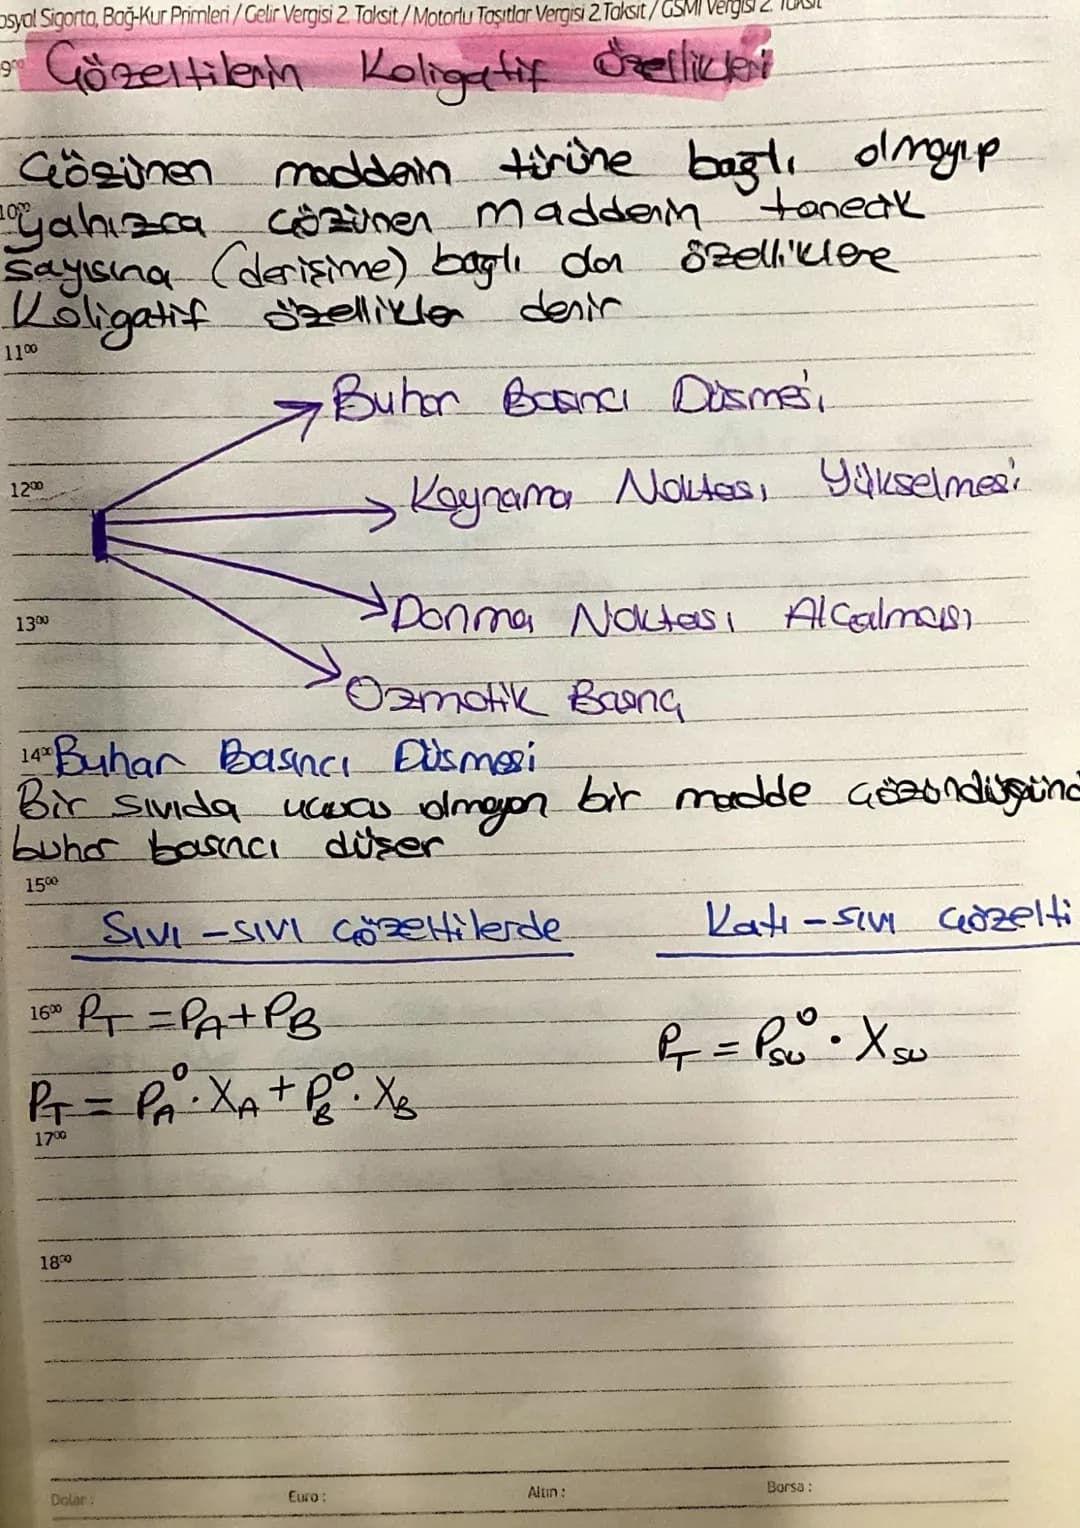 osyal Sigorta, Bağ-Kur Primleri / Gelir Vergisi 2. Taksit / Motorlu Taşıtlar Vergisi 2.Taksit / GSMİ Vergisi 2. Taksit
9⁰⁰ Çözeltilerin Koligatif Özellikleri
Çözünen maddenin türüne bağlı olmayıp
10⁰⁰ yalnızca çözünen maddenin tanecik
sayısına (derişime) bağlı olan özelliklere
Koligatif özellikler denir
11⁰⁰
Buhar Basıncı Düşmesi
12⁰⁰
Kaynama Noktası Yükselmesi
13⁰⁰
Donma Noktası Alçalması
Ozmotik Basınç
14⁰⁰ Buhar Basıncı Düşmesi
Bir sıvıda uçucu olmayan bir madde çözündüğünd
buhar basıncı düşer
15⁰⁰
Sıvı-sıvı çözeltilerde Katı-sıvı çözelti
16⁰⁰ P_T = P_A + P_B
P_T = P°_su · X_su
P_T = P_A° · X_A + P_B° · X_B
17⁰⁰
18⁰⁰
Dolar : Euro : Altın : Borsa :